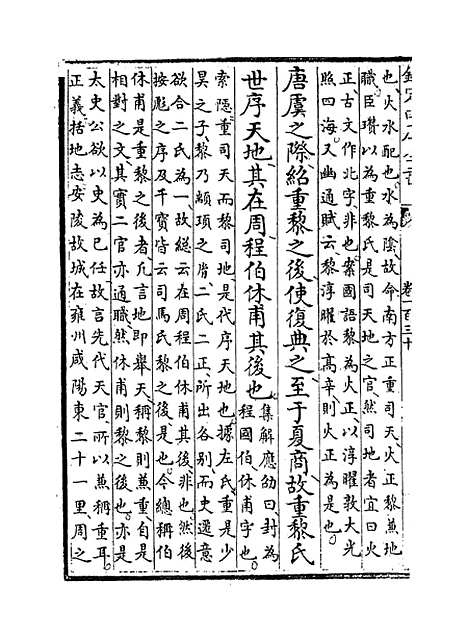 欽定四庫全書
卷一百三十
也火水配也水為陰故命南方正重司天火正黎兼地
職臣瓚以為重黎氏是司天地之官然司地者宜曰火
正古文作北字非也案國語黎為火正以淳曜敦大光
照四海又幽通賦云黎淳曜於高辛則火正為是也
唐虞之際紹重黎之後使復典之至于夏商故重黎氏
世序天地其在周程伯休甫其後也
集解應劭曰封為
程國伯休甫字也
索隱重司天而黎司地是代序天地也據左氏重是少
昊之子黎乃顓頊之胤二氏二正所出各别而史遷意
欲合二氏為一故總云在周程伯休甫其後非也然後
按彪之序及干寳皆云司馬氏黎之後是也今總稱伯
休甫是重黎之後者凡言地即舉天稱黎則兼重自是
相對之文其實二官亦通職然休甫則黎之後也亦是
太史公欲以史為已任故言先代天官所以兼稱重耳
正義括地志安陵故城在雍州咸陽東二十一里周之